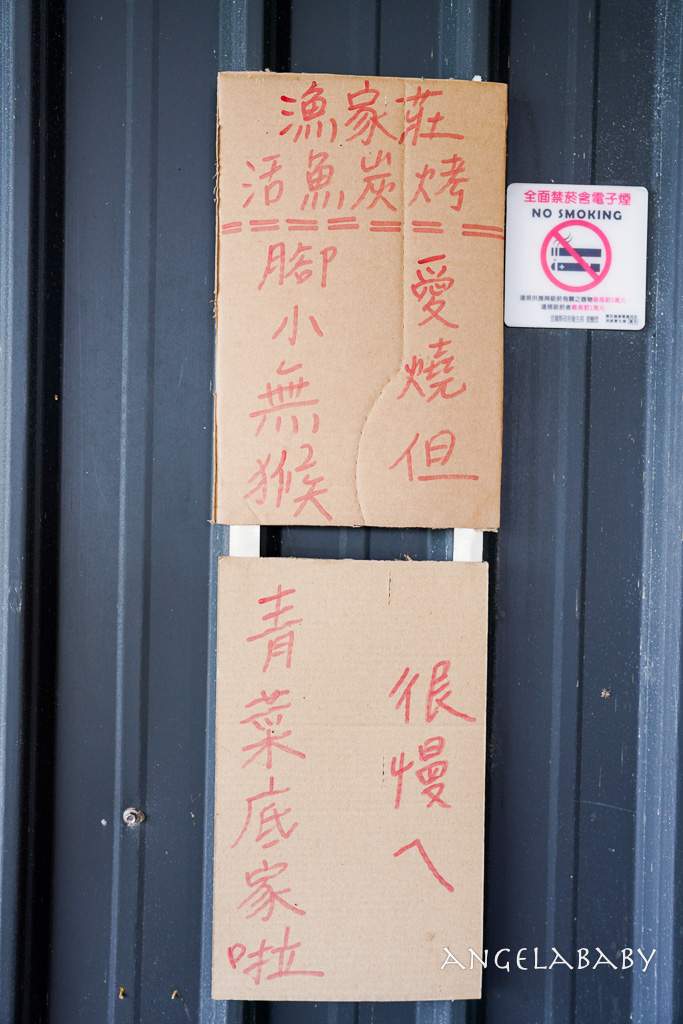 漁家莊
活魚炭烤
愛燒但
腳小無猴
很慢ㄟ
青菜底家啦
全面禁菸含電子煙
NO SMOKING
ANGELABABY